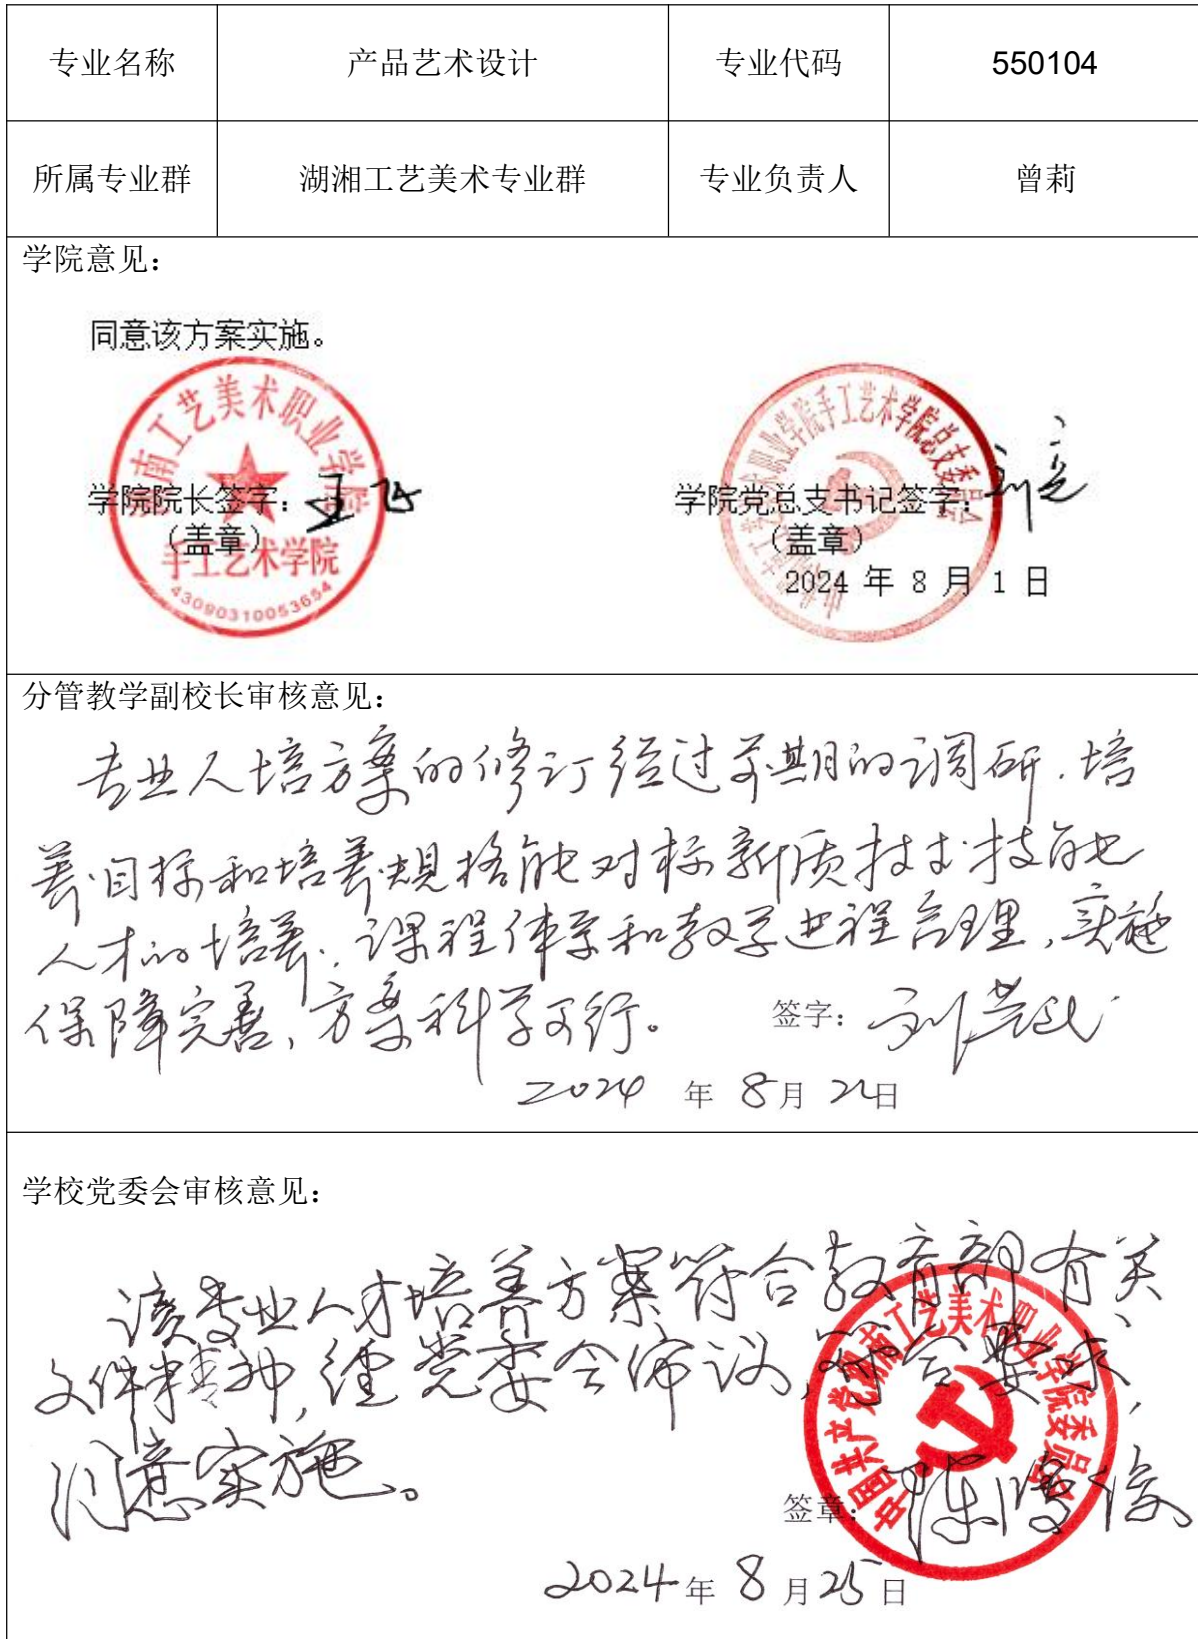 专业名称 产品艺术设计 专业代码 550104
所属专业群 湖湘工艺美术专业群 专业负责人 曾莉
学院意见：
同意该方案实施。
湖南工艺美术职业学院
手工艺术学院
43090310053654
学院院长签字：
（盖章）
湖南工艺美术职业学院手工艺术学院总支委员会
学院党总支书记签字：
（盖章）
2024 年 8 月 1 日
分管教学副校长审核意见：
专业人培方案的修订经过前期的调研，培
养目标和培养规格能对标新质技术技能
人才的培养，课程体系和教学进程合理，实施
保障完善，方案科学可行。 签字：
2024 年 8月 22日
学校党委会审核意见：
该专业人才培养方案符合教育部有关
文件精神，经党委会审议，符合要求，
同意实施。
中国共产党湖南工艺美术职业学院委员会
签章：
2024年 8 月25日